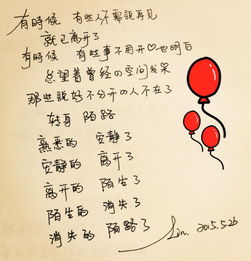 有时候 有些人不需说再见
就已离开了
有时候 有些事不用开♡也明白
总望着曾经の空间发呆
那些说好不分开の人不在了
转身 陌路
熟悉的 安静了
安静的 离开了
离开的 陌生了
陌生的 消失了
消失的 陌路了
Lin. 2015.5.26